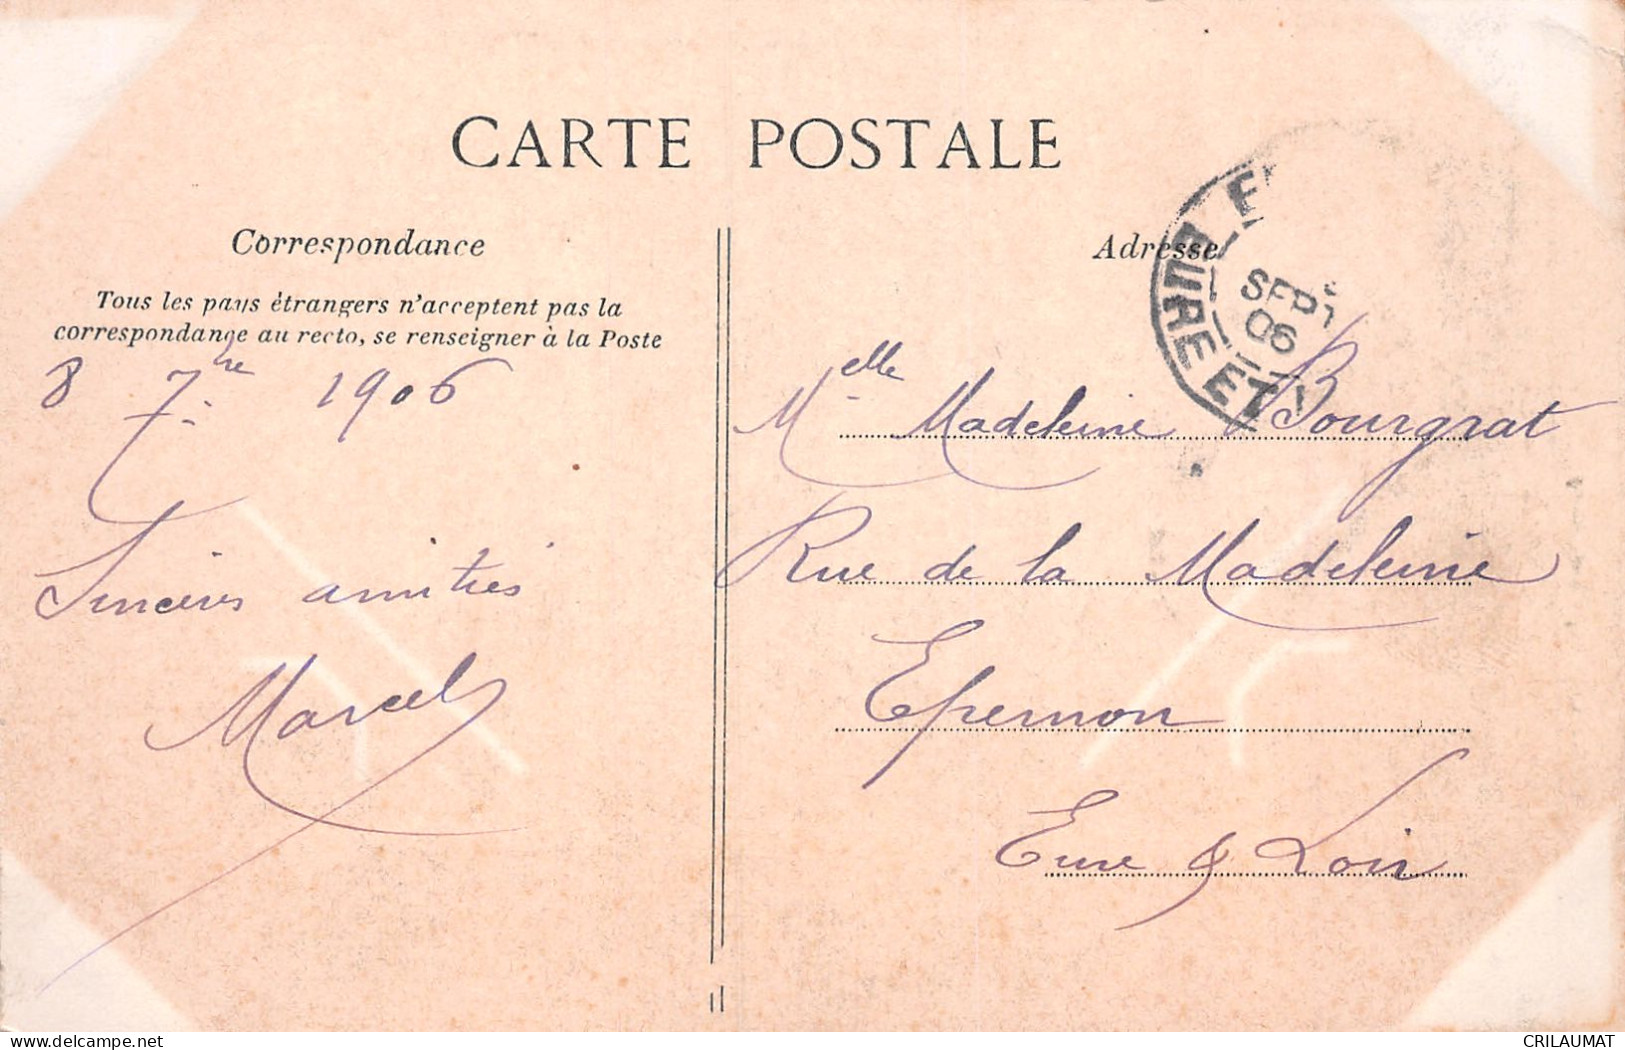 CARTE POSTALE
Correspondance
Tous les pays étrangers n'acceptent pas la
correspondance au recto, se renseigner à la Poste
8 7bre 1906
Sincères amitiés
Marcel
Adresse
Melle Madeleine Bourgrat
Rue de la Madeleine
Epernon
Eure & Loir
EURE ET
SEPT
06
www.delcampe.net
CRILAUMAT